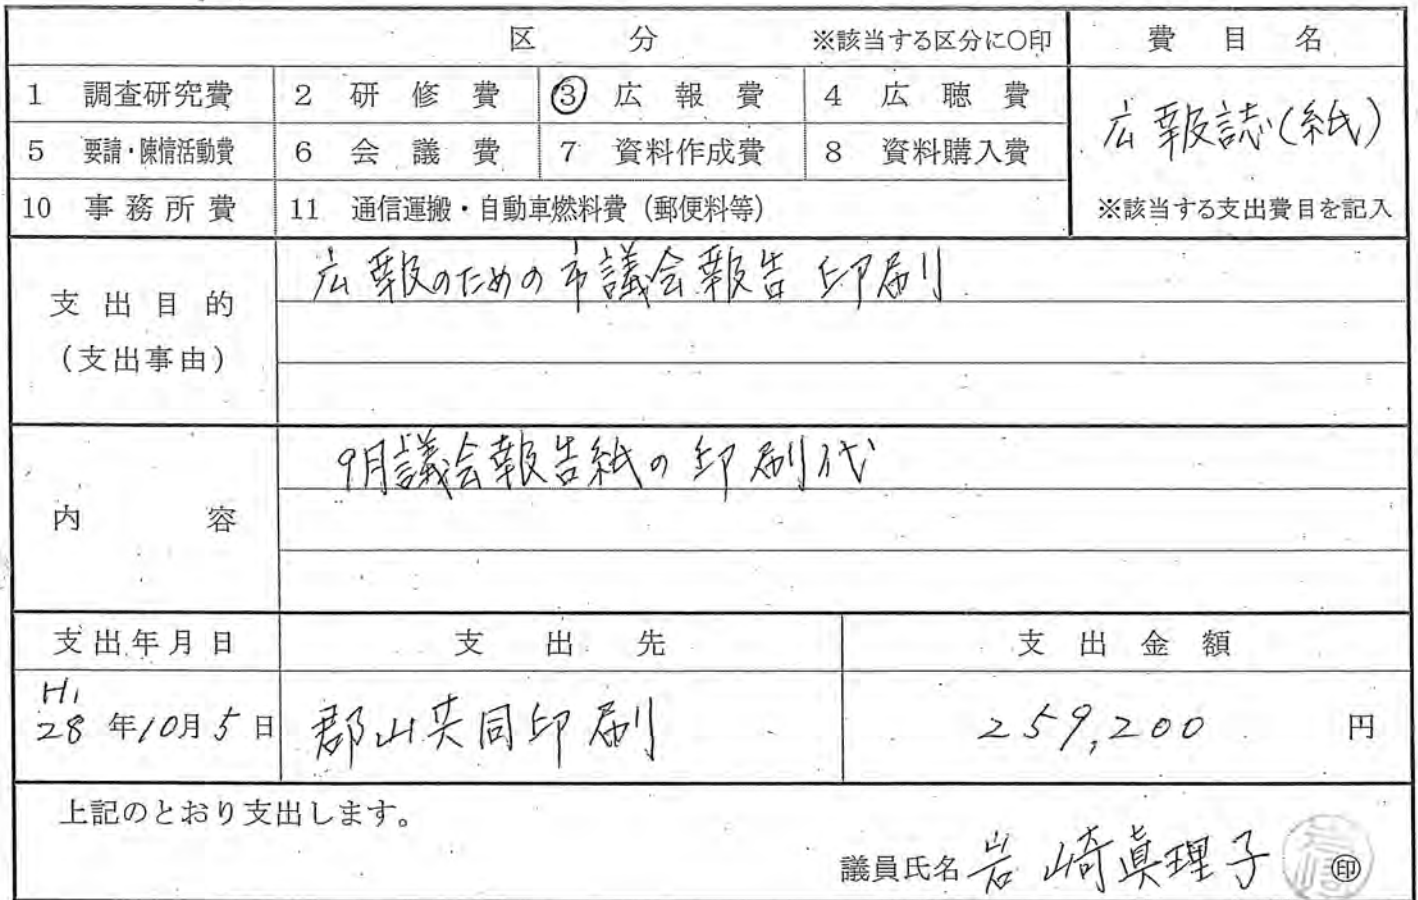 区 分 ※該当する区分に○印 費 目 名
1 調査研究費 2 研 修 費 ③ 広 報 費 4 広 聴 費
広報誌(紙)
5 要請・陳情活動費 6 会 議 費 7 資料作成費 8 資料購入費
10 事務所費 11 通信運搬・自動車燃料費(郵便料等) ※該当する支出費目を記入
広報のための市議会報告印刷
支出目的
(支出事由)
9月議会報告紙の印刷代
内 容
支出年月日 支 出 先 支 出 金 額
H,
28年10月5日 郡山共同印刷 259,200 円
上記のとおり支出します。
議員氏名 岩崎真理子 ㊞